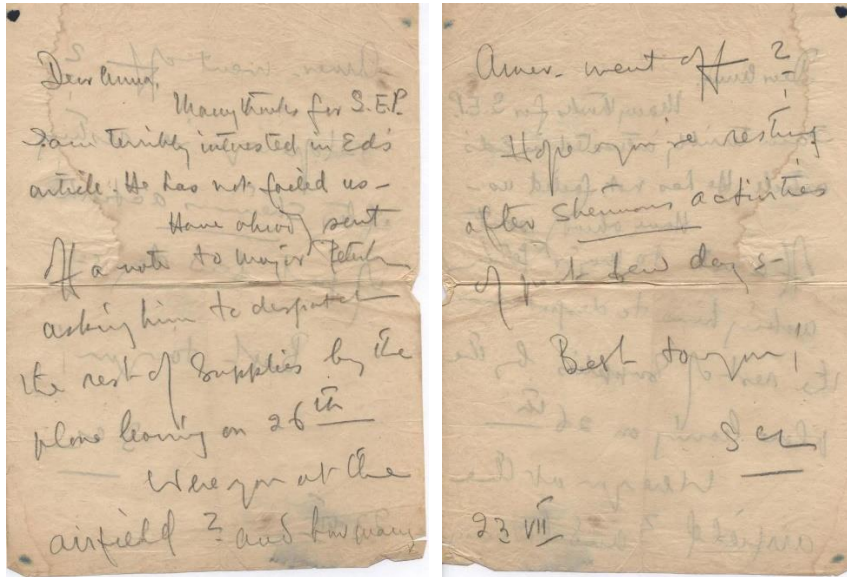 Dear Anna,
Many thanks for S.E.P.
I am terribly interested in Ed's
article. He has not failed us –
Have already sent
off a note to Major
asking him to despatch
the rest of supplies by the
plane leaving on 26th
Were you at the
airfield? and how many
Amer. went off?
Hope you're resting
after strenuous activities
of past few days –
Best to you,
23 VII